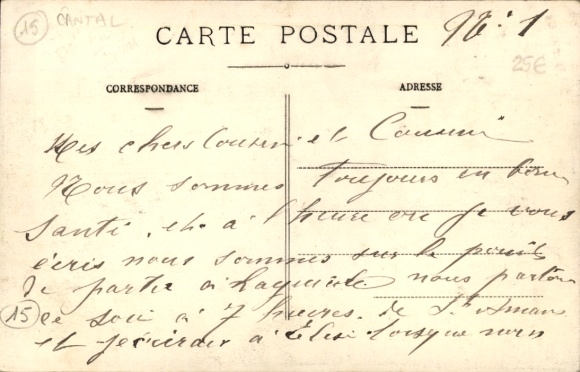 15 CANTAL
CARTE POSTALE N° 1
25€
CORRESPONDANCE
ADRESSE
Mes chers Cousin et Cousine
Nous sommes toujours en bonne
santé, et à l'heure ou je vous
écris nous sommes sur le point
de partir à nous partons
15
ce soir à 7 heures de St Amans
et j'écrirai à Elise lorsque nous